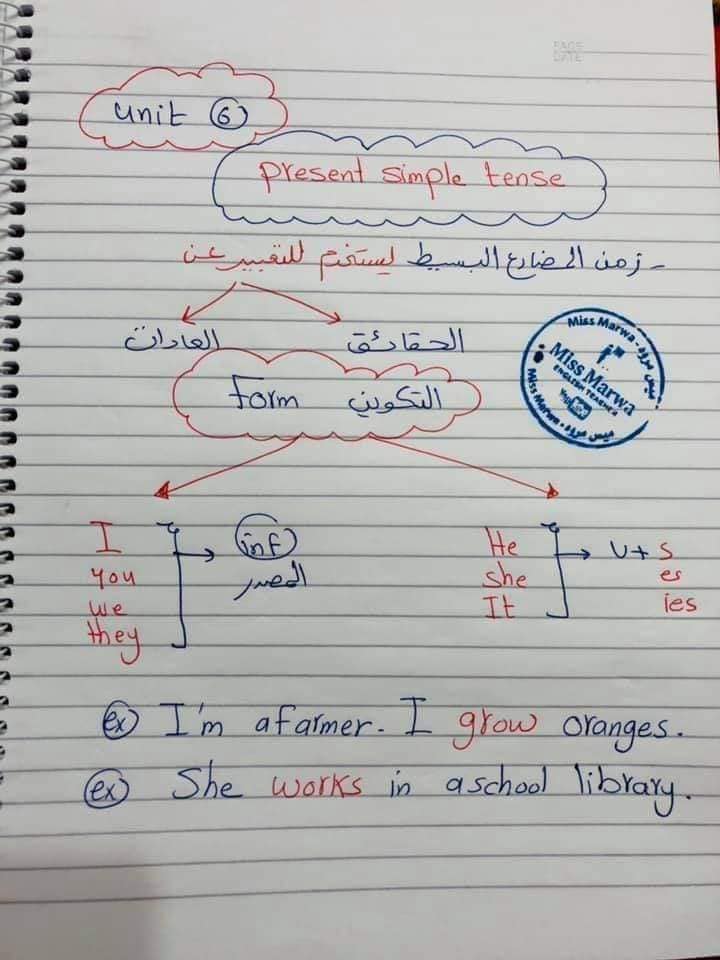 PAGE
DATE
unit 6
present simple tense
- زمن المضارع البسيط يستخدم للتعبير عن
الحقائق العادات
Form التكوين
I inf He v+ s
you المصدر she es
we It ies
they
Miss Marwa - ميس مروه
Miss Marwa
ENGLISH TEACHER
YouTube
Miss Marwa - ميس مروه
ex I'm a farmer. I grow oranges.
ex She works in a school library.